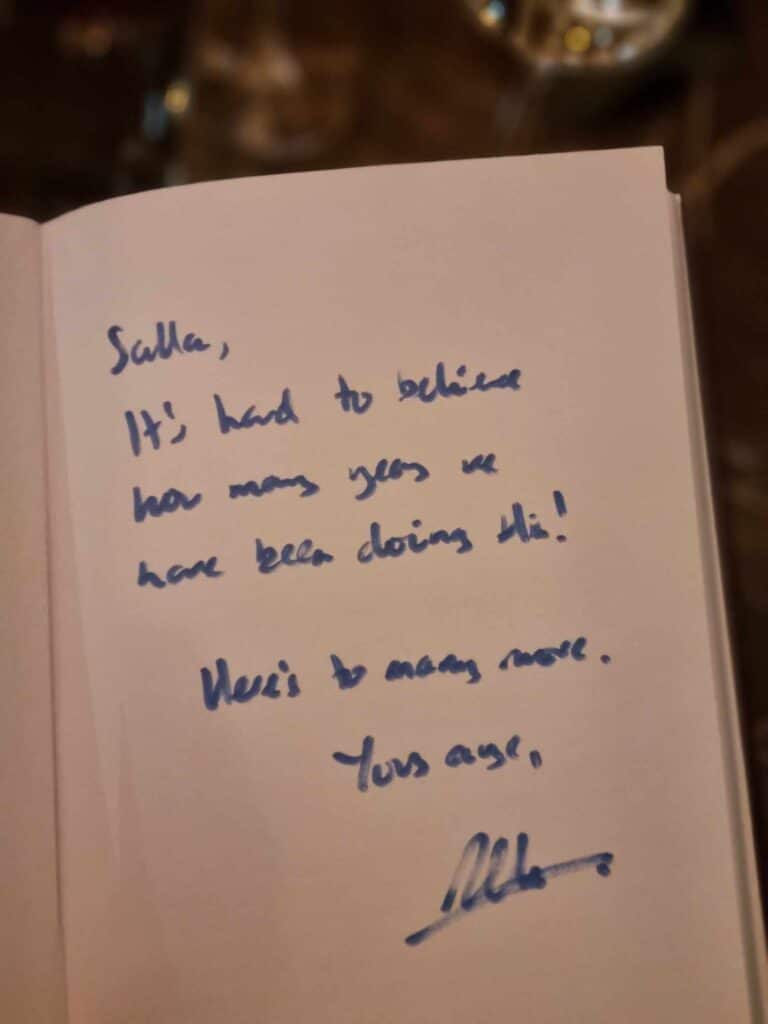 Salla,
It's hard to believe
how many years we
have been doing this!
Here's to many more.
Yours aye,